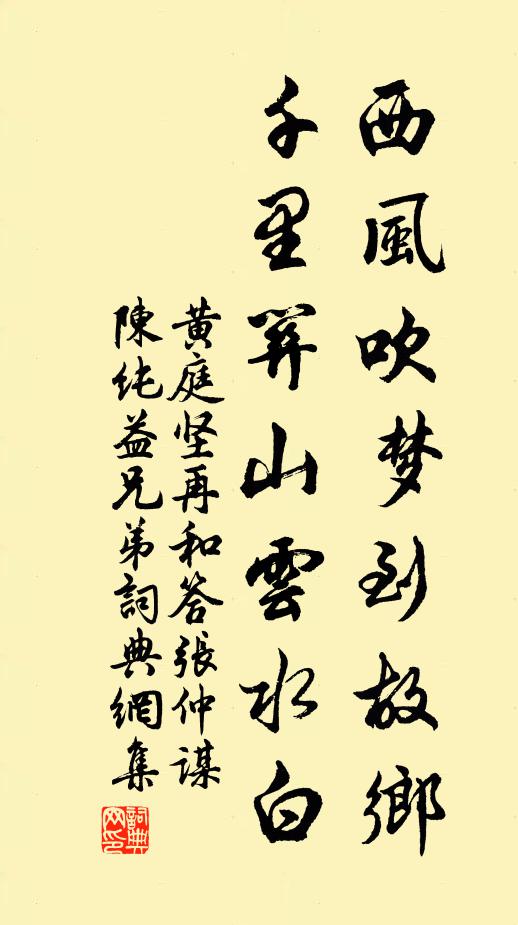 西風吹梦到故鄉
千里關山雲水白
黄庭坚再和答張仲謀
陳純益兄弟詞典網集
詞典
网印